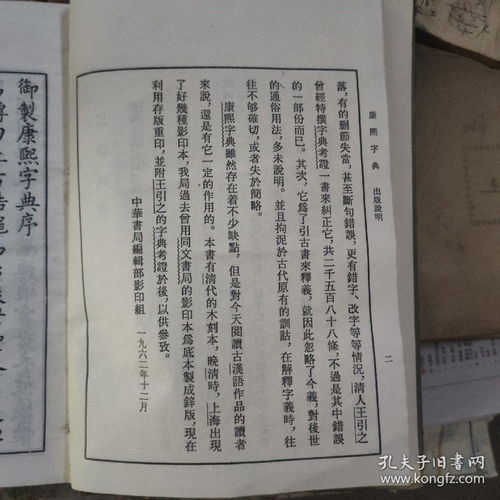 康熙字典 出版說明
二
落,有的刪節失當,甚至斷句錯誤,更有錯字、改字等等情況,清人王引之
曾經特撰字典考證一書來糾正它,共二千五百八十八條,不過是其中錯誤
的一部份而已。其次,它爲了引古書來釋義,就因此忽略了今義,對後世
的通俗用法,多未說明。並且拘泥於古代原有的訓詁,在解釋字義時,往
往不够確切,或者失於簡略。
康熙字典雖然存在着不少缺點,但是對今天閱讀古漢語作品的讀者
來說,還是有它一定的作用的。本書有清代的木刻本,晚清時,上海出現
了好幾種影印本,我局過去曾用同文書局的影印本爲底本製成鋅版,現在
利用存版重印,並附王引之的字典考證於後,以供參攷。
中華書局編輯部影印組
一九六二年十二月
御製康熙字典序
孔夫子旧书网
www.kongfz.com